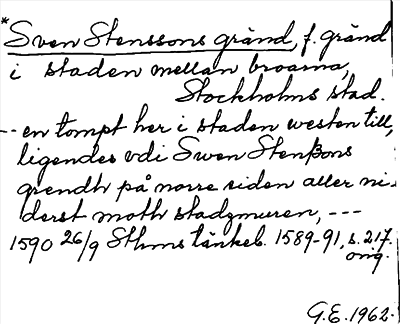 *Sven Stenssons gränd, f. gränd
i staden mellan broarna,
Stockholms stad.
--en tompt her i staden westen till,
ligendes vdi Swen Stenßons
grendh på norre siden aller ni-
derst moth stadzmuren, ---
1590 26/9 Sthms tänkeb. 1589-91, s. 217.
orig.
G.E. 1962.